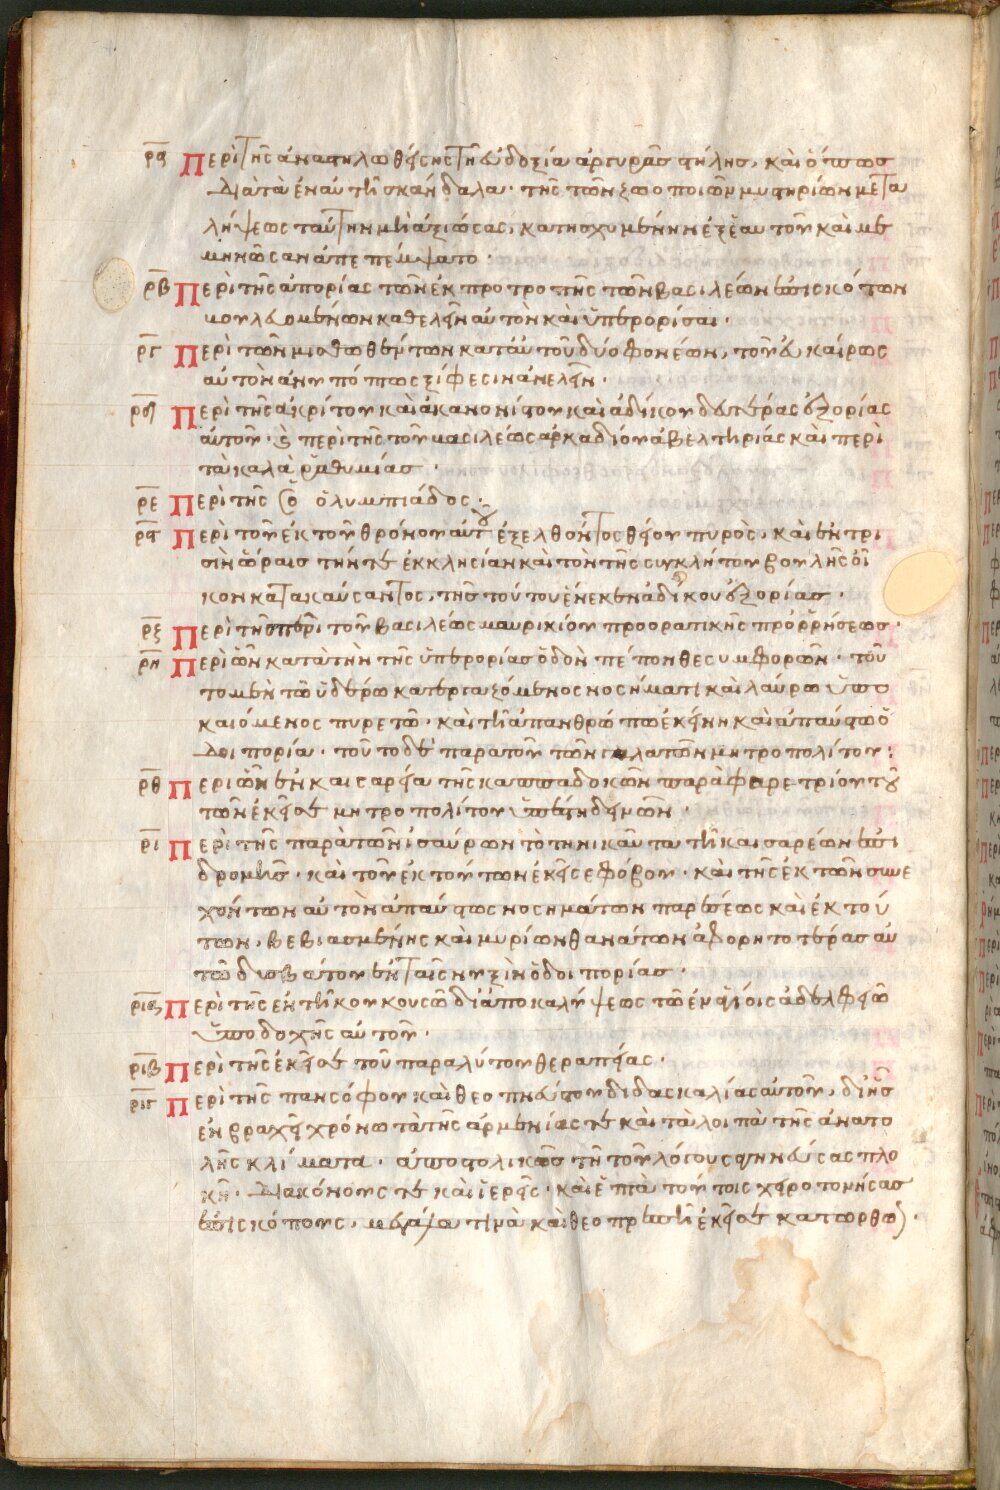 ρα Περὶ τῆς ἀναστηλωθείσης τῆ εὐδοξία ἀργυρᾶς στήλης, καὶ ὅπως
διὰ τὰ ἐν αὐτῆ σκάνδαλα· τῆς τῶν ζωοποιῶν μυστηρίων μετα
λήψεως ταύτην μὴ ἀξιώσας, κατησχυμμένην ἐξ ἑαυτοῦ καὶ με
μηνῶσαν ἀπεπέμψατο·
ρβ Περὶ τῆς ἀπορίας τῶν ἐκ προτροπῆς τῶν βασιλέων ἐπισκόπων
βουλευομένων καθελεῖν αὐτὸν καὶ ὑπερορίσαι·
ργ Περὶ τῶν μισθωθέντων κατ' αὐτοῦ δύο φονέων, τοῦ εὐκαίρως
αὐτὸν ἀνυπόπτως ξίφεσιν ἀνελεῖν·
ρδ Περὶ τῆς ἀκρίτου καὶ ἀκανονίστου καὶ ἀδίκου δευτέρας ἐξορίας
αὐτοῦ· καὶ περὶ τῆς τοῦ βασιλέως ἀρκαδίου ἀβελτηρίας καὶ περὶ
τὰ καλὰ ῥαθυμίας·
ρε Περὶ τῆς ὀλυμπιάδος·
ρϛ Περὶ τοῦ ἐκ τοῦ θρόνου αὐτοῦ ἐξελθόντος θείου πυρὸς, καὶ ἐν τρι
σὶν ὥραις τήν τε ἐκκλησίαν καὶ τὸν τῆς συγκλήτου βουλῆς οἶ
κον κατακαύσαντος, τῆς τούτου ἕνεκεν ἀδίκου ἐξορίας·
ρζ Περὶ τῆς περὶ τοῦ βασιλέως μαυρικίου προορατικῆς προρρήσεως·
ρη Περὶ ὧν κατὰ τὴν τῆς ὑπερορίας ὁδὸν πέπονθε συμφορῶν· τοῦ
το μὲν τῶ ὑδέρω κατεργαζόμενος νοσήματι καὶ λαύρω ὑπο
καιόμενος πυρετῶ· καὶ τῆ ἀπανθρώπω ἐκείνη καὶ ἀπαύστω ὁ
δοιπορία· τοῦτο δὲ παρὰ τοῦ τῶν γαλατῶν μητροπολίτου·
ρθ Περὶ ὧν ἐν καισαρεία τῆς καππαδοκῶν παρὰ φαρετρίου τοῦ
τῶν ἐκεῖσε μητροπολίτου ὑπέστη δεινῶν·
ρι Περὶ τῆς παρὰ τῶν ἰσαύρων τὸ τηνικαῦτα τῆ καισαρέων ἐπι
δρομῆς· καὶ τοῦ ἐκ τούτων ἐκεῖσε φόβου· καὶ τῆς ἐκ τῶν συνε
χόντων αὐτὸν ἀπαύστως νοσημάτων παρέσεως καὶ ἐκ τού
των, βεβιασμένης καὶ μυρίων θανάτων ἀφορητοτέρας αὐ
τοῦ δυσβάτου ἐν ταῖς νυξὶν ὁδοιπορίας·
ρια Περὶ τῆς ἐν τῆ κουκουσῶ δι' ἀποκαλύψεως τῶ ἐν ἁγίοις ἀδελφίω
ὑποδοχῆς αὐτοῦ·
ριβ Περὶ τῆς ἐκεῖσε τοῦ παραλύτου θεραπείας·
ριγ Περὶ τῆς πανσόφου καὶ θεοπνεύστου διδασκαλίας αὐτοῦ, δι' ἧς
ἐν βραχεῖ χρόνω τὰ τῆς ἀρμενίας τε καὶ τὰ λοιπὰ τῆς ἀνατο
λῆς κλίματα· ἀποστολικῶς τῆ τοῦ λόγου σαγηνεύσας πλο
κῆ· διακόνους τε καὶ ἱερεῖς· καὶ ἔτι τούτοις χειροτονήσας
ἐπισκόπους, μεγάλα τινὰ καὶ θεοπρεπῆ ἐκεῖσε κατώρθω·